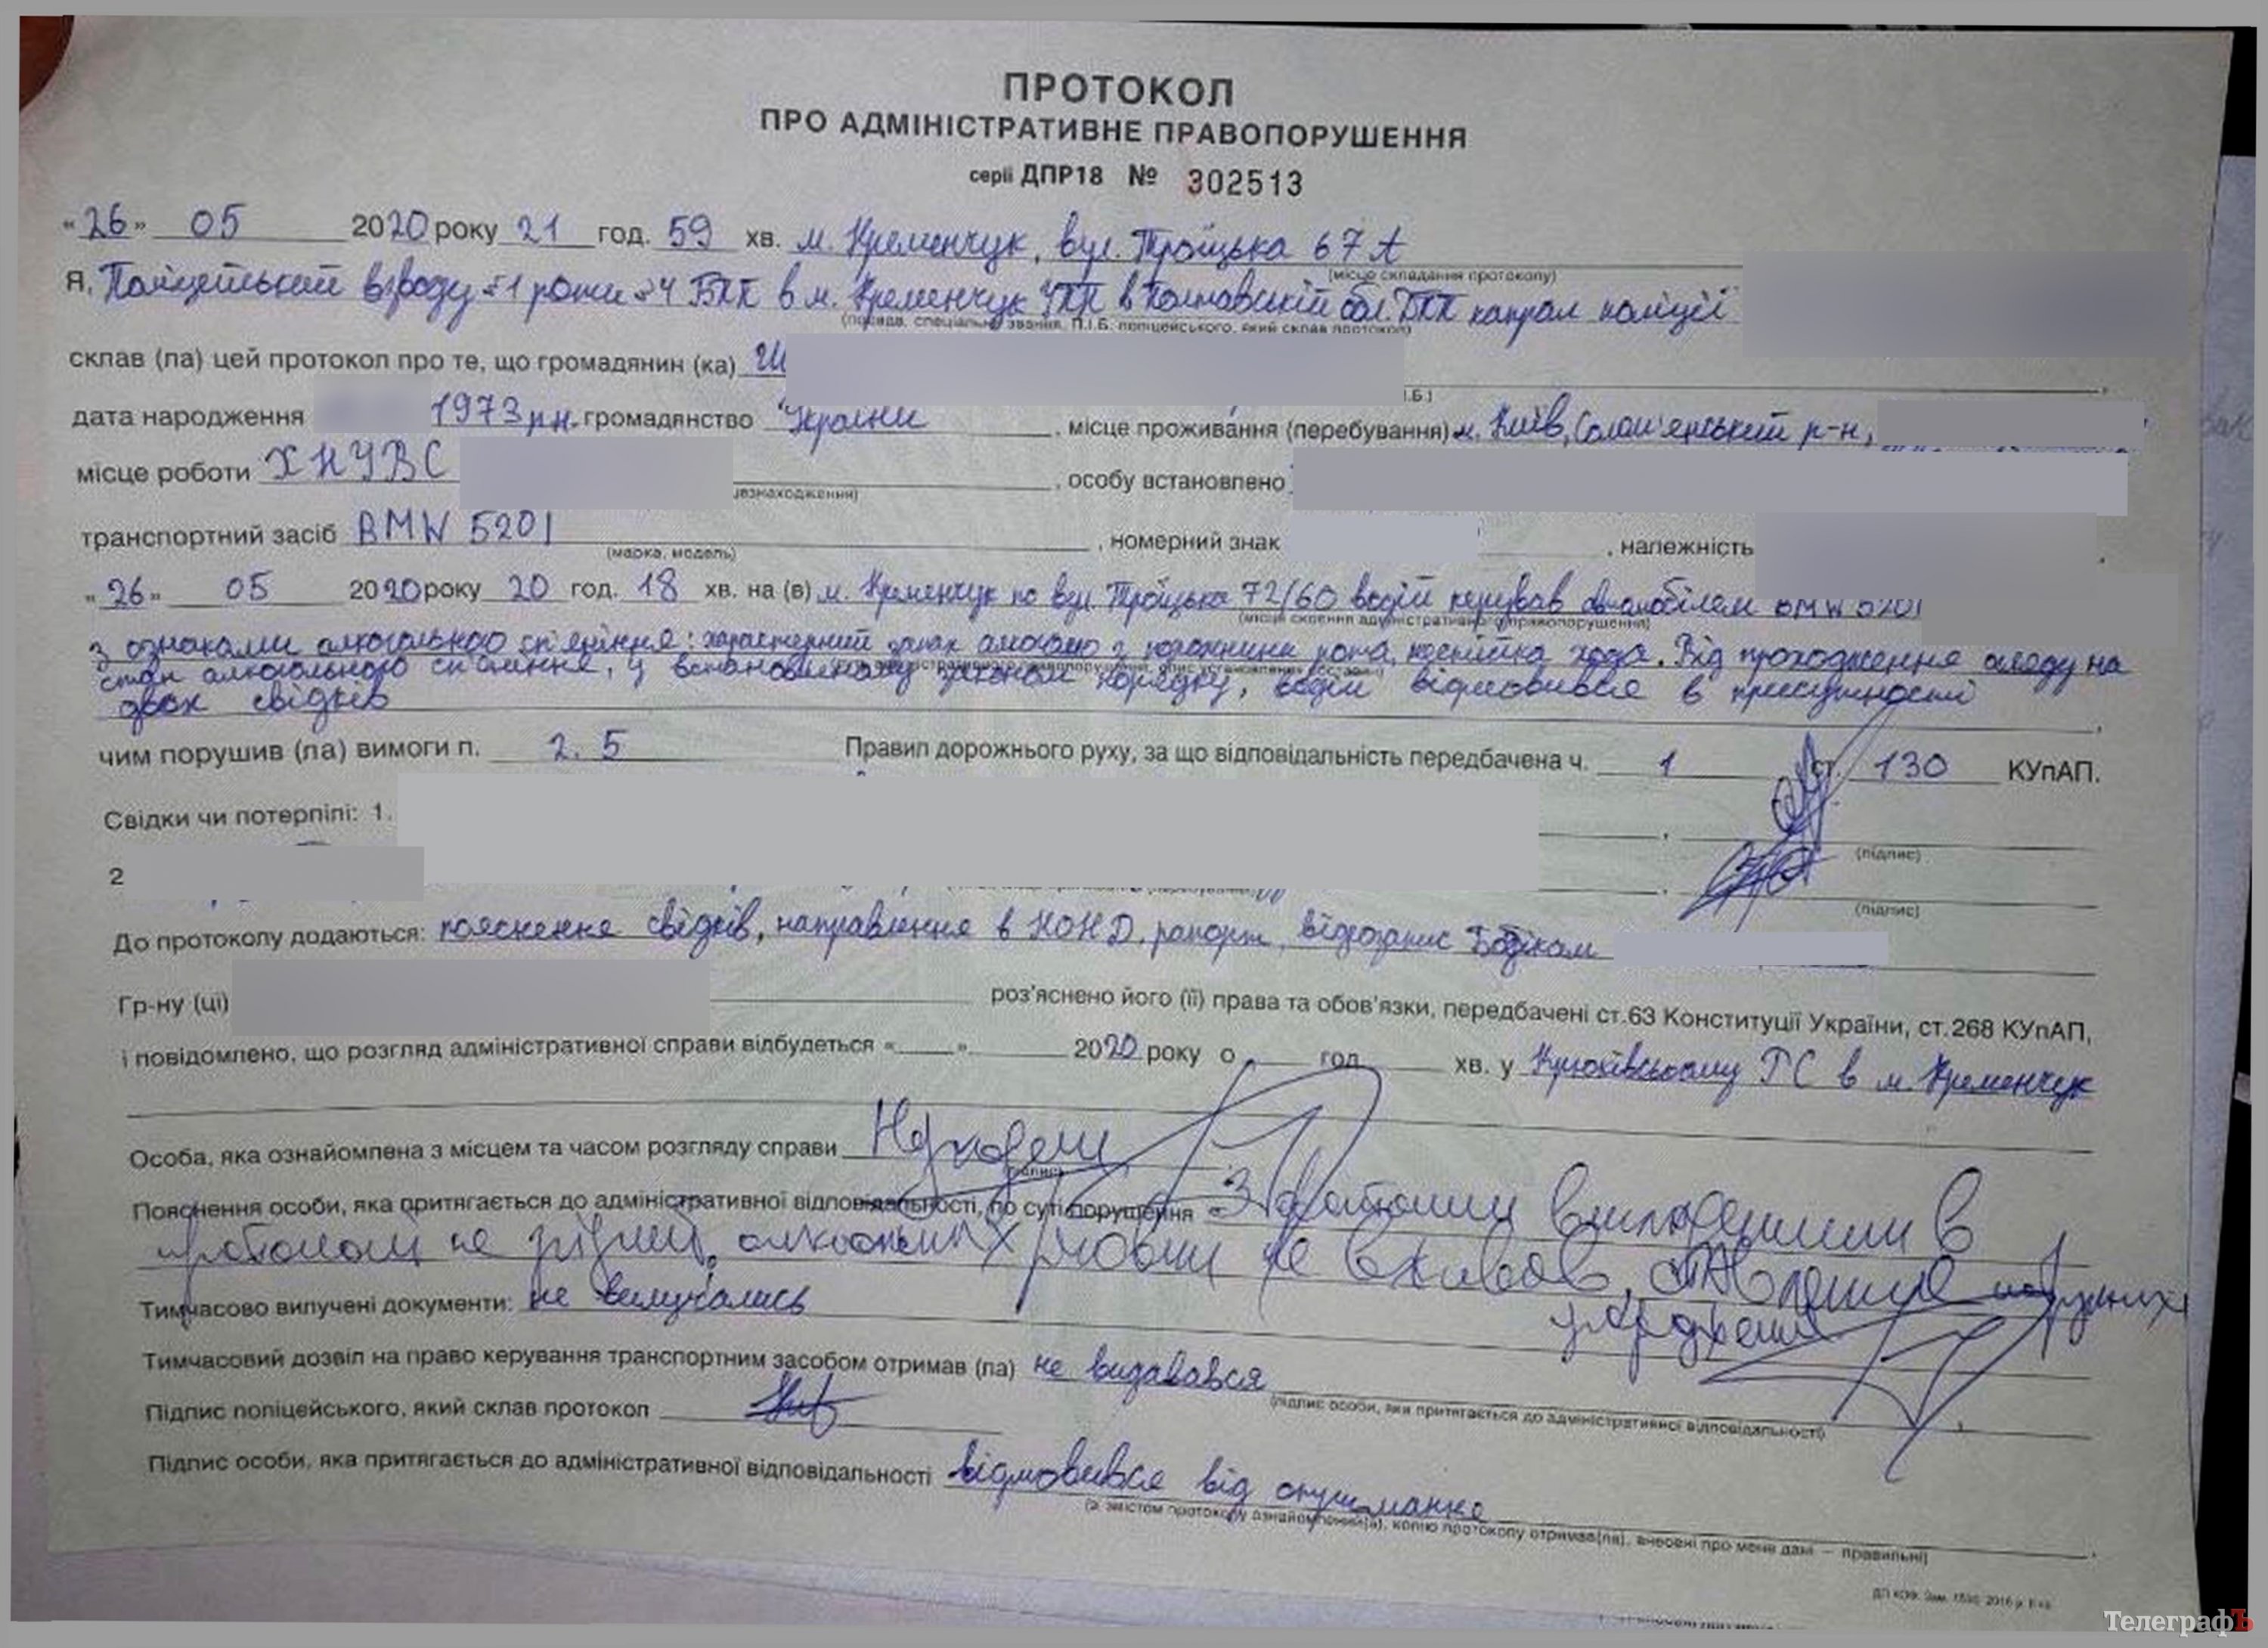 ПРОТОКОЛ
ПРО АДМІНІСТРАТИВНЕ ПРАВОПОРУШЕННЯ
серії ДПР18 № 302513
«26» 05 2020 року 21 год. 59 хв. м. Кременчук, вул. Троїцька 67 А
(місце складання протоколу)
Я, Поліцейський взводу №1 роти №4 БПП в м. Кременчук УПП в Полтавській обл. ДПП капрал поліції
(посада, спеціальне звання, П.І.Б. поліцейського, який склав протокол)
склав (ла) цей протокол про те, що громадянин (ка) Ш
.І.Б.)
дата народження 1973 р.н. громадянство України , місце проживання (перебування) м. Київ, Солом'янський р-н,
місце роботи ХНУВС , особу встановлено
транспортний засіб BMW 520I , номерний знак , належність
(марка, модель)
«26» 05 2020 року 20 год. 18 хв. на (в) м. Кременчук по вул. Троїцька 72/60 водій керував автомобілем BMW 520I
(місце скоєння адміністративного правопорушення)
з ознаками алкогольного сп'яніння: характерний запах алкоголю з порожнини рота, хода. Від проходження огляду на
стан алкогольного сп'яніння, у встановленому законом порядку, водій відмовився в присутності
двох свідків
чим порушив (ла) вимоги п. 2.5 Правил дорожнього руху, за що відповідальність передбачена ч. 1 ст. 130 КУпАП.
Свідки чи потерпілі: 1.
(підпис)
2
(підпис)
До протоколу додаються: пояснення свідків, направлення в КОНД, рапорт, відеозапис Бодікам
Гр-ну (ці) роз'яснено його (її) права та обов'язки, передбачені ст.63 Конституції України, ст.268 КУпАП,
і повідомлено, що розгляд адміністративної справи відбудеться « » 2020 року о год хв. у Крюківському РС в м. Кременчук
Особа, яка ознайомлена з місцем та часом розгляду справи
(підпис)
Пояснення особи, яка притягається до адміністративної відповідальності, по суті порушення « З викладеними в
протоколі не згідний, алкогольних не вживав,
Тимчасово вилучені документи: не вилучались
Тимчасовий дозвіл на право керування транспортним засобом отримав (ла) не видавався
(підпис особи, яка притягається до адміністративної відповідальності)
Підпис поліцейського, який склав протокол
Підпис особи, яка притягається до адміністративної відповідальності відмовився від отримання
(з змістом протоколу ознайомлений(а), копію протоколу отримав(ла), внесені про мене дані – правильні)
ТелеграфЪ